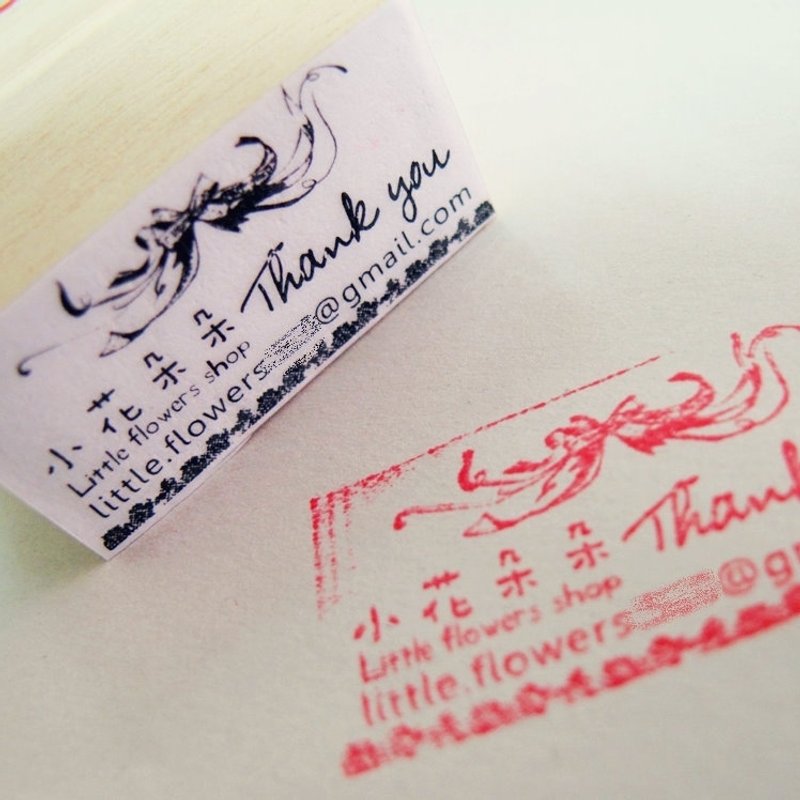 Thank you
小花朵朵
Little flowers shop
little.flowers @gmail.com
Thank
小花朵朵
Little flowers shop
little.flowers @g